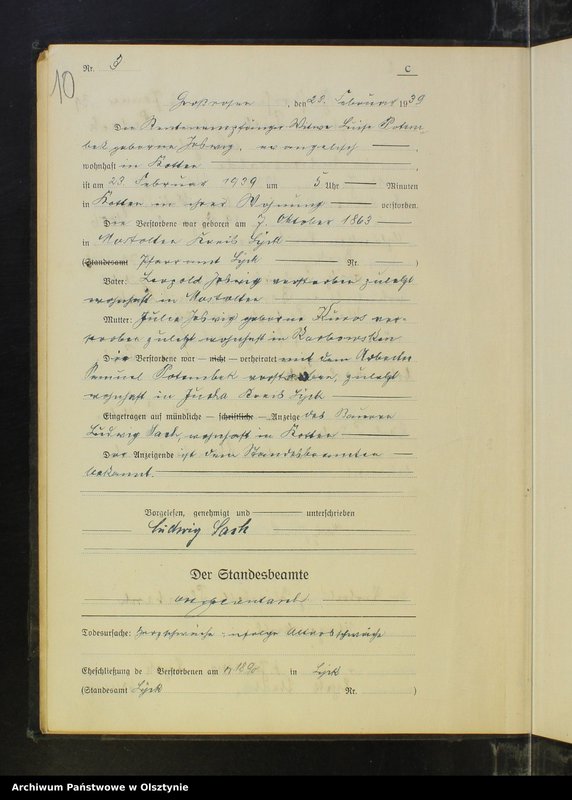 10
Nr. 3 C
Großrosen, den 28. Februar 1939
Die Rentenempfänger Witwe Luise Kotem-
bek geborene Joswig, evangelisch,
wohnhaft in Kotten
ist am 23. Februar 1939 um 5 Uhr Minuten
in Kotten in ihrer Wohnung verstorben.
Die Verstorbene war geboren am 7. Oktober 1863
in Mostolten Kreis Lyck
(Standesamt Pfarramt Lyck Nr. )
Vater: Leopold Joswig verstorben zuletzt
wohnhaft in Mostolten
Mutter: Julie Joswig geborene ver-
storben zuletzt wohnhaft in
Die Verstorbene war — nicht — verheiratet mit dem Arbeiter
Samuel Kotembek verstorben, zuletzt
wohnhaft in Jucha Kreis Lyck
Eingetragen auf mündliche — schriftliche — Anzeige des Bauern
Ludwig Sack, wohnhaft in Kotten
Der Anzeigende ist dem Standesbeamten
bekannt.
Vorgelesen, genehmigt und unterschrieben
Ludwig Sack
Der Standesbeamte
Todesursache: Herzschwäche infolge Altersschwäche
Eheschließung de Verstorbenen am 1890 in Lyck
(Standesamt Lyck Nr. )
Archiwum Państwowe w Olsztynie